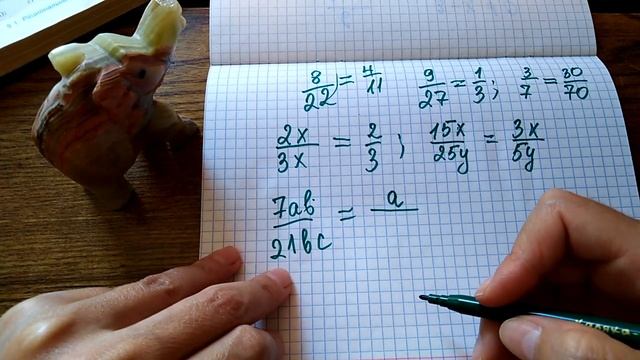 8/22 = 4/11 9/27 = 1/3; 3/7 = 30/70
2x/3x = 2/3; 15x/25y = 3x/5y
7ab/21bc = a/